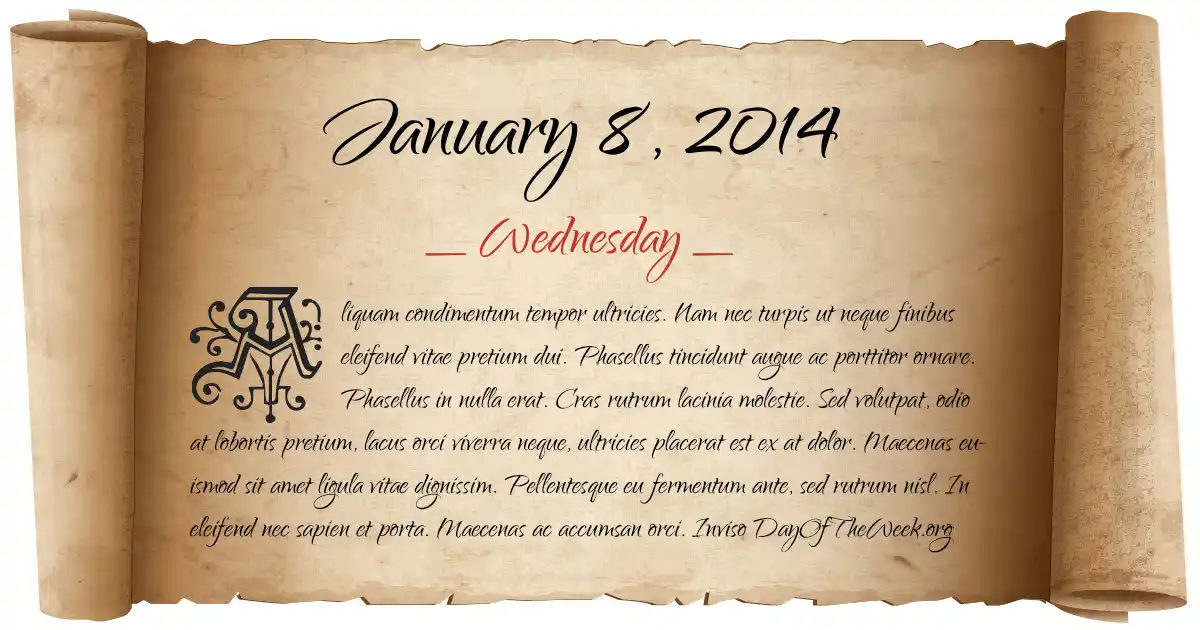 January 8, 2014
— Wednesday —
Aliquam condimentum tempor ultricies. Nam nec turpis ut neque finibus
eleifend vitae pretium dui. Phasellus tincidunt augue ac porttitor ornare.
Phasellus in nulla erat. Cras rutrum lacinia molestie. Sed volutpat, odio
at lobortis pretium, lacus orci viverra neque, ultricies placerat est ex at dolor. Maecenas eu-
ismod sit amet ligula vitae dignissim. Pellentesque eu fermentum ante, sed rutrum nisl. In
eleifend nec sapien et porta. Maecenas ac accumsan orci. Inviso DayOfTheWeek.org